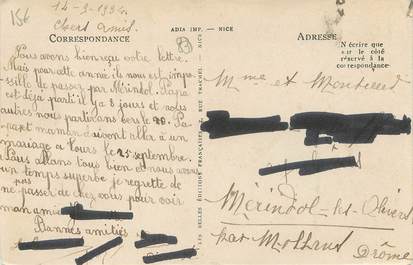 15€
14-9-1934
Chers Amis.
ADIA IMP. - NICE
CORRESPONDANCE
ADRESSE
N'écrire que
sur le côté
réservé à la
correspondance
LES BELLES ÉDITIONS FRANÇAISES, RUE TRACHEL - NICE
Nous avons bien reçu votre lettre.
Mais pour cette année il nous est impo-
ssible de passer par Mérindol. Papa
est déjà parti il y a 8 jours et nous
autres nous partirons vers le 20. Pa-
pa et maman doivent aller à un
mariage à Tours le 25 septembre.
Nous allons tous bien et nous avons
un temps superbe je regrette de
pas
ne passer de chez vous pour voir
mon ami
Bonnes amitiés
Mme et Monsieur
Mérindol-les-Oliviers
par Mollans
Drôme